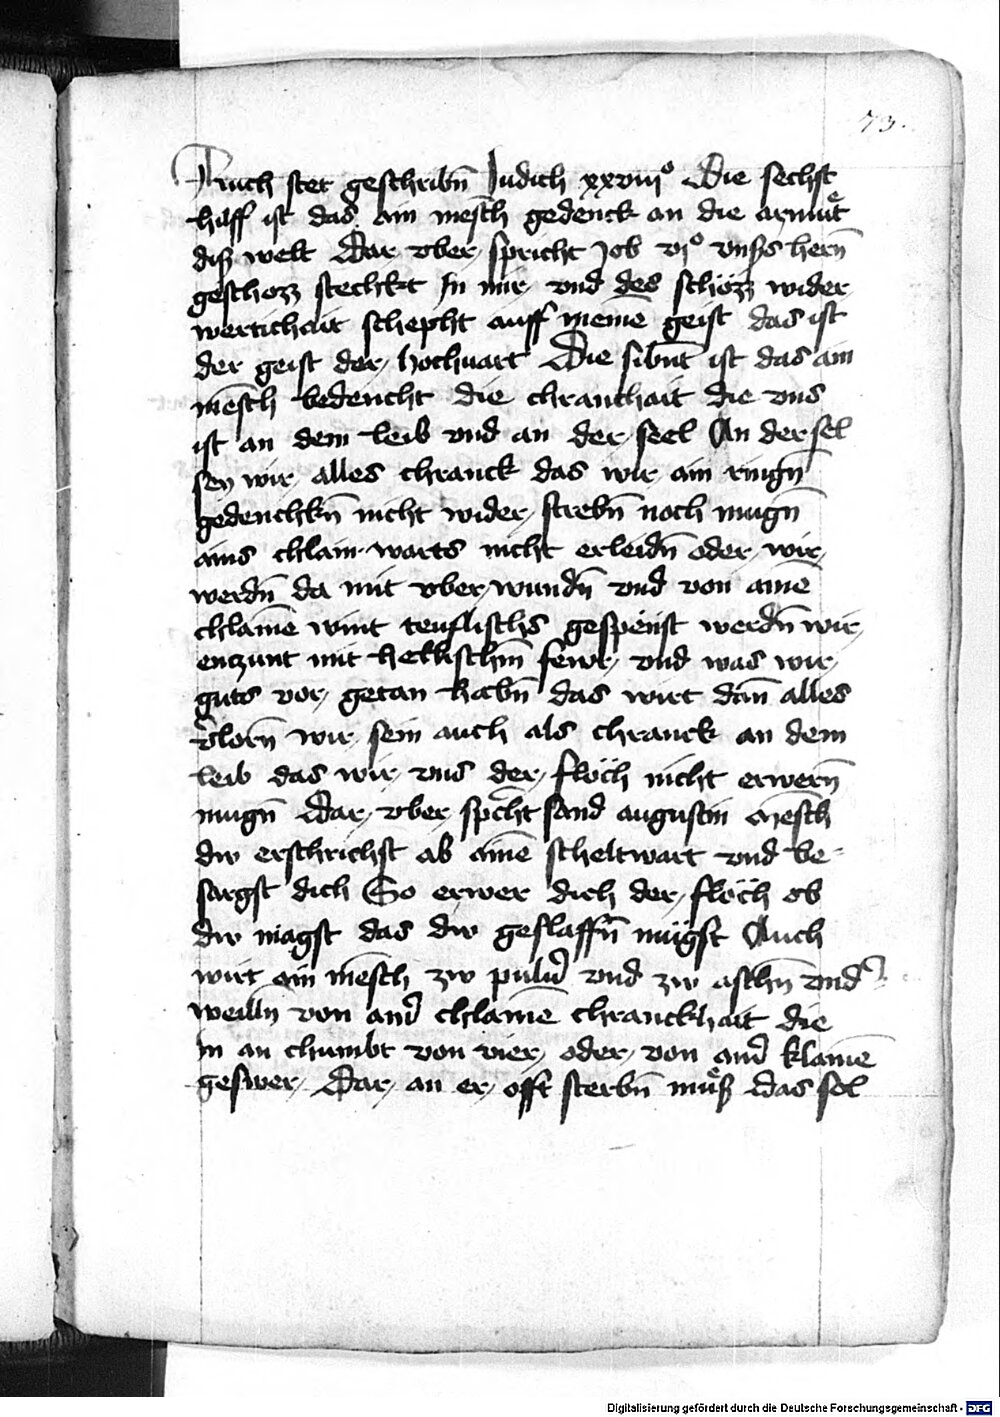 73.
Auch stet geschribn̄ Judich xxviijͦ Die sechst
hilff ist das ain mēsch gedenck an die armuͤt
diß welt Dar vber spricht Job vjͦ vnßs hern̄
geschozz stechkt In mir vnd des schözz wider
wertichait schepht auff meinē geist das ist
der geist der hochuart Die sibnt̄ ist das ain
mēsch bedencht die chranchait die vns
ist an dem leib vnd an der seel An der sel
sey wir alles chranck das wir ain ringn̄
gedenchkn̄ nicht wider strebn̄ noch mugn̄
ains chlain warts nicht erleidn̄ oder wir
werdn̄ da mit vber wundn̄ vnd von ainē
chlainē wint teuflischs gespenst werdn̄ wir
enczunt mit hellischm̄ fewr vnd was wir
guts vor getan habn̄ das wirt dan̄ alles
v̉lorn̄ wir sein auch als chranck an dem
leib das wir vns der flöch nicht erwern̄
mugn̄ Dar vber sp̄cht sand augustin mēsch
dw erschrichst ab ainē scheltwart vnd be-
sargst dich So erwer dich der flöch ob
dw magst das dw geslaffn̄ mügst Auch
wirt ain mēsch zw pulủ vnd zw aschn̄ vnd̉
weilln̄ von and̉ chlainē chranckhait die
in an chumbt von vier oder von and̉ klainē
geswer Dar an er offt sterbn̄ muͤß das sel
Digitalisierung gefördert durch die Deutsche Forschungsgemeinschaft - DFG